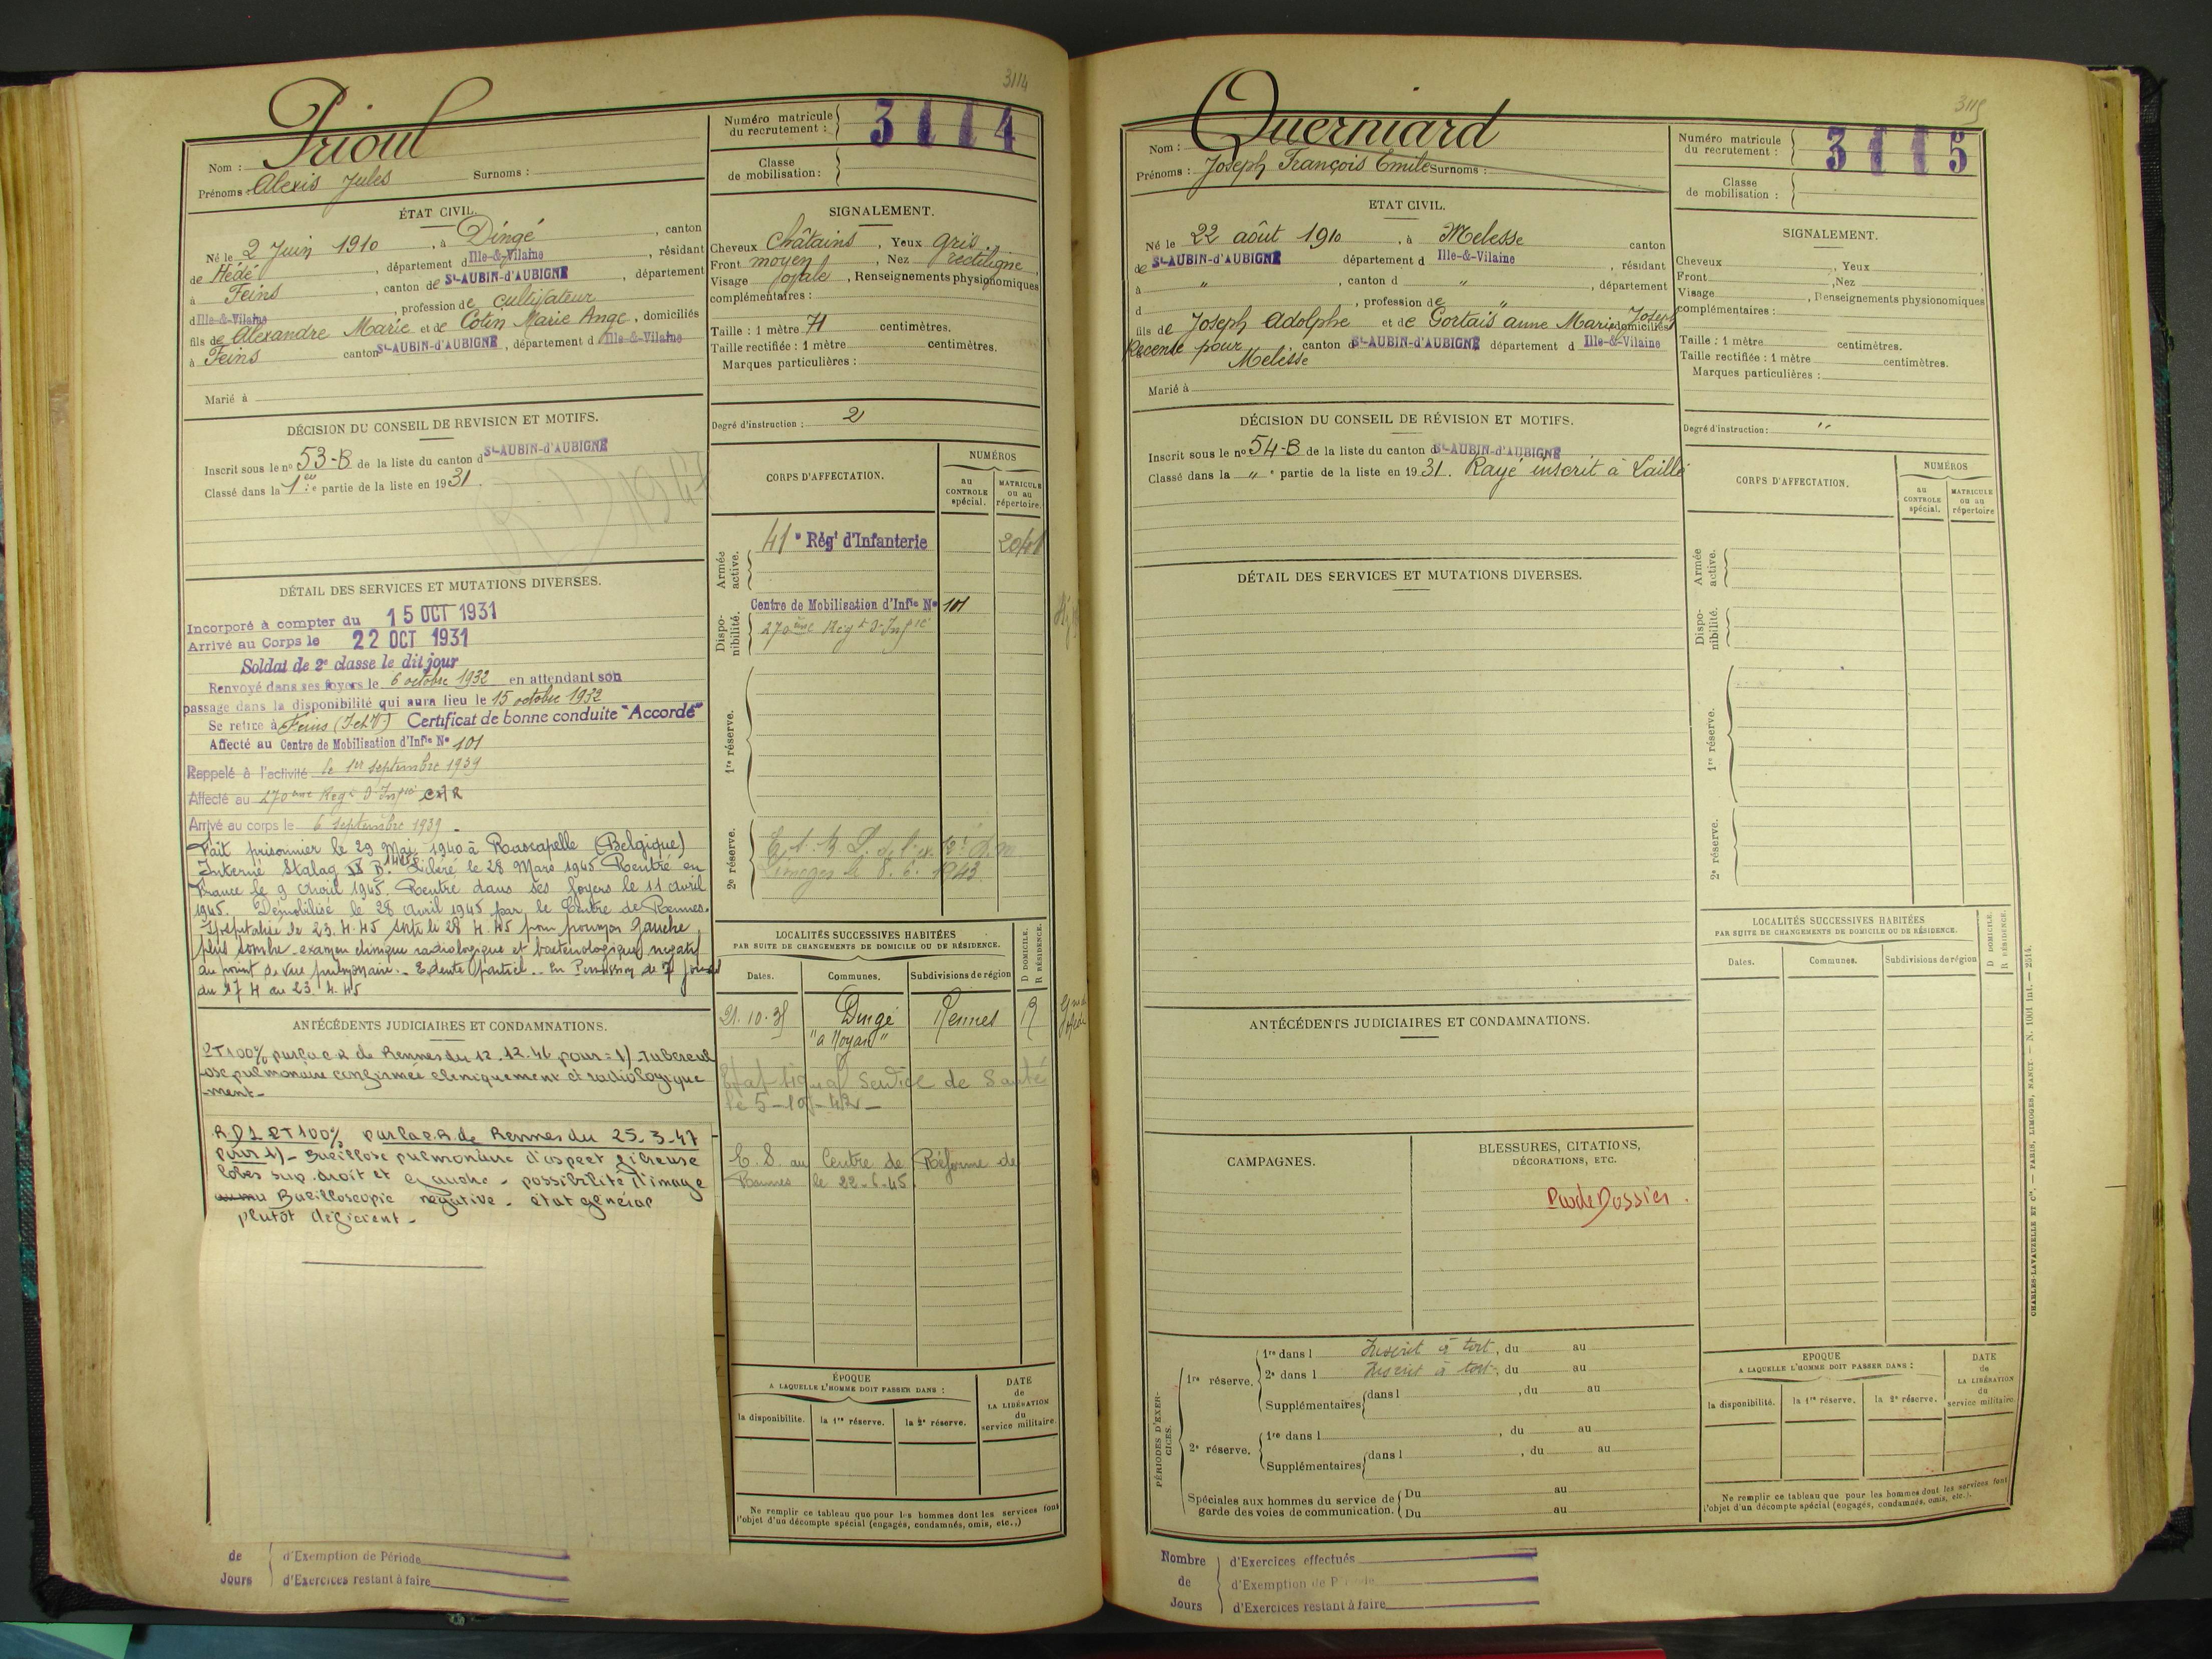 3114
Prioul
Nom :
Prénoms : Alexis Jules Surnoms :
Numéro matricule
du recrutement :
3114
Classe
de mobilisation :
ÉTAT CIVIL.
Né le 2 Juin 1910, à Dingé, canton
de Hédé, département d Ille-&-Vilaine, résidant
à Feins, canton de St-AUBIN-d'AUBIGNÉ, département
d Ille-&-Vilaine, profession de cultivateur
fils de Alexandre Marie et de Cotin Marie Ange, domiciliés
à Feins canton St-AUBIN-d'AUBIGNÉ, département d Ille-&-Vilaine
Marié à
SIGNALEMENT.
Cheveux Châtains, Yeux gris.
Front moyen, Nez rectiligne,
Visage ovale, Renseignements physionomiques
complémentaires :
Taille : 1 mètre 71 centimètres.
Taille rectifiée : 1 mètre centimètres.
Marques particulières :
Degré d'instruction : 2
DÉCISION DU CONSEIL DE REVISION ET MOTIFS.
Inscrit sous le no 53-B de la liste du canton d St-AUBIN-d'AUBIGNÉ
Classé dans la 1ère partie de la liste en 1931.
CORPS D'AFFECTATION.
NUMÉROS
au
CONTROLE
spécial.
MATRICULE
ou au
répertoire.
Armée
active.
41e Régt d'Infanterie
Dispo-
nibilité.
Centre de Mobilisation d'Infie No 101
270ème Régt d'Infie
1re réserve.
2e réserve.
Limoges le 8.6.1943
DÉTAIL DES SERVICES ET MUTATIONS DIVERSES.
Incorporé à compter du 15 OCT 1931
Arrivé au Corps le 22 OCT 1931
Soldat de 2e classe le dit jour
Renvoyé dans ses foyers le 6 octobre 1932 en attendant son
passage dans la disponibilité qui aura lieu le 15 octobre 1932
Se retire à Feins (I-et-V) Certificat de bonne conduite "Accordé"
Affecté au Centre de Mobilisation d'Infie No 101
Rappelé à l'activité le 1er septembre 1939
Affecté au 270ème Régt d'Infie
Arrivé au corps le 6 septembre 1939.
Fait prisonnier le 29 Mai 1940 à Roascapelle (Belgique)
Interné Stalag B. Libéré le 28 Mars 1945 Rentré en
France le 9 avril 1945. Rentré dans ses foyers le 11 avril
1945. Démobilisé le 28 avril 1945 par le Centre de Rennes.
Hospitalisé le 23.4.45 sorti le 28.4.45 pour poumon gauche
plus sombre - examen clinique radiologique et bactériologique négatif
au point de vue pulmonaire. - Edenté partiel. - En Permission de 7 jours
du 17 4 au 23.4.45
LOCALITÉS SUCCESSIVES HABITÉES
PAR SUITE DE CHANGEMENTS DE DOMICILE OU DE RÉSIDENCE.
D DOMICILE.
R RÉSIDENCE.
Dates.
Communes.
Subdivisions de région
21.10.35 Dingé Rennes R
Service de Santé
le 5-10-42-
C. S. au Centre de Réforme de
Rennes le 22-6-45
ANTÉCÉDENTS JUDICIAIRES ET CONDAMNATIONS.
PT 100% par la C R de Rennes du 12.12.46 pour = 1) - Tubercul
ose pulmonaire confirmée cliniquement et radiologique
ment -
R D 1 PT 100% par la C.R. de Rennes du 25-3-47
pour 1) - Bacillose pulmonaire d'aspect fibreuse
lobes sup. droit et gauche - possibilité d'image
Bacilloscopie négative - état général
plutôt déficient -
ÉPOQUE
A LAQUELLE L'HOMME DOIT PASSER DANS :
la disponibilité.
la 1re réserve.
la 2e réserve.
DATE
de
LA LIBÉRATION
du
service militaire.
Ne remplir ce tableau que pour les hommes dont les services font
l'objet d'un décompte spécial (engagés, condamnés, omis, etc.,)
de
Jours
d'Exemption de Période
d'Exercices restant à faire
3115
Querniard
Nom :
Prénoms : Joseph François Emile Surnoms :
Numéro matricule
du recrutement :
3115
Classe
de mobilisation :
ETAT CIVIL.
Né le 22 août 1910, à Melesse canton
de St-AUBIN-d'AUBIGNÉ département d Ille-&-Vilaine, résidant
à ", canton d ", département
d, profession de "
fils de Joseph Adolphe et de Gortais Anne Marie Joseph domiciliés
Recensé pour Melesse canton d St-AUBIN-d'AUBIGNÉ département d Ille-&-Vilaine
Marié à
SIGNALEMENT.
Cheveux, Yeux
Front, Nez
Visage, Renseignements physionomiques
complémentaires :
Taille : 1 mètre centimètres.
Taille rectifiée : 1 mètre centimètres.
Marques particulières :
Degré d'instruction : "
DÉCISION DU CONSEIL DE RÉVISION ET MOTIFS.
Inscrit sous le no 54-B de la liste du canton d St-AUBIN-d'AUBIGNÉ
Classé dans la " e partie de la liste en 1931. Rayé inscrit à Laillé
CORPS D'AFFECTATION.
NUMÉROS
au
CONTROLE
spécial.
MATRICULE
ou au
répertoire
Armée
active.
Dispo-
nibilité.
1re réserve.
2e réserve.
DÉTAIL DES SERVICES ET MUTATIONS DIVERSES.
LOCALITÉS SUCCESSIVES HABITÉES
PAR SUITE DE CHANGEMENTS DE DOMICILE OU DE RÉSIDENCE.
D DOMICILE.
R RÉSIDENCE.
Dates.
Communes.
Subdivisions de région
ANTÉCÉDENTS JUDICIAIRES ET CONDAMNATIONS.
CAMPAGNES.
BLESSURES, CITATIONS,
DÉCORATIONS, ETC.
Pas de Dossier.
PÉRIODES D'EXER-
CICES.
1re réserve.
1re dans l Inscrit à tort, du au
2e dans l Inscrit à tort, du au
Supplémentaires dans l, du au
2e réserve.
1re dans l, du au
Supplémentaires dans l, du au
Spéciales aux hommes du service de
garde des voies de communication.
Du au
Du au
EPOQUE
A LAQUELLE L'HOMME DOIT PASSER DANS :
la disponibilité.
la 1re réserve.
la 2e réserve.
DATE
de
LA LIBÉRATION
du
service militaire.
Ne remplir ce tableau que pour les hommes dont les services font
l'objet d'un décompte spécial (engagés, condamnés, omis, etc.,).
Nombre
de
Jours
d'Exercices effectués
d'Exemption de
d'Exercices restant à faire
CHARLES-LAVAUZELLE ET Cie. — PARIS, LIMOGES, NANCY — N. 1001 Int. — 2514.